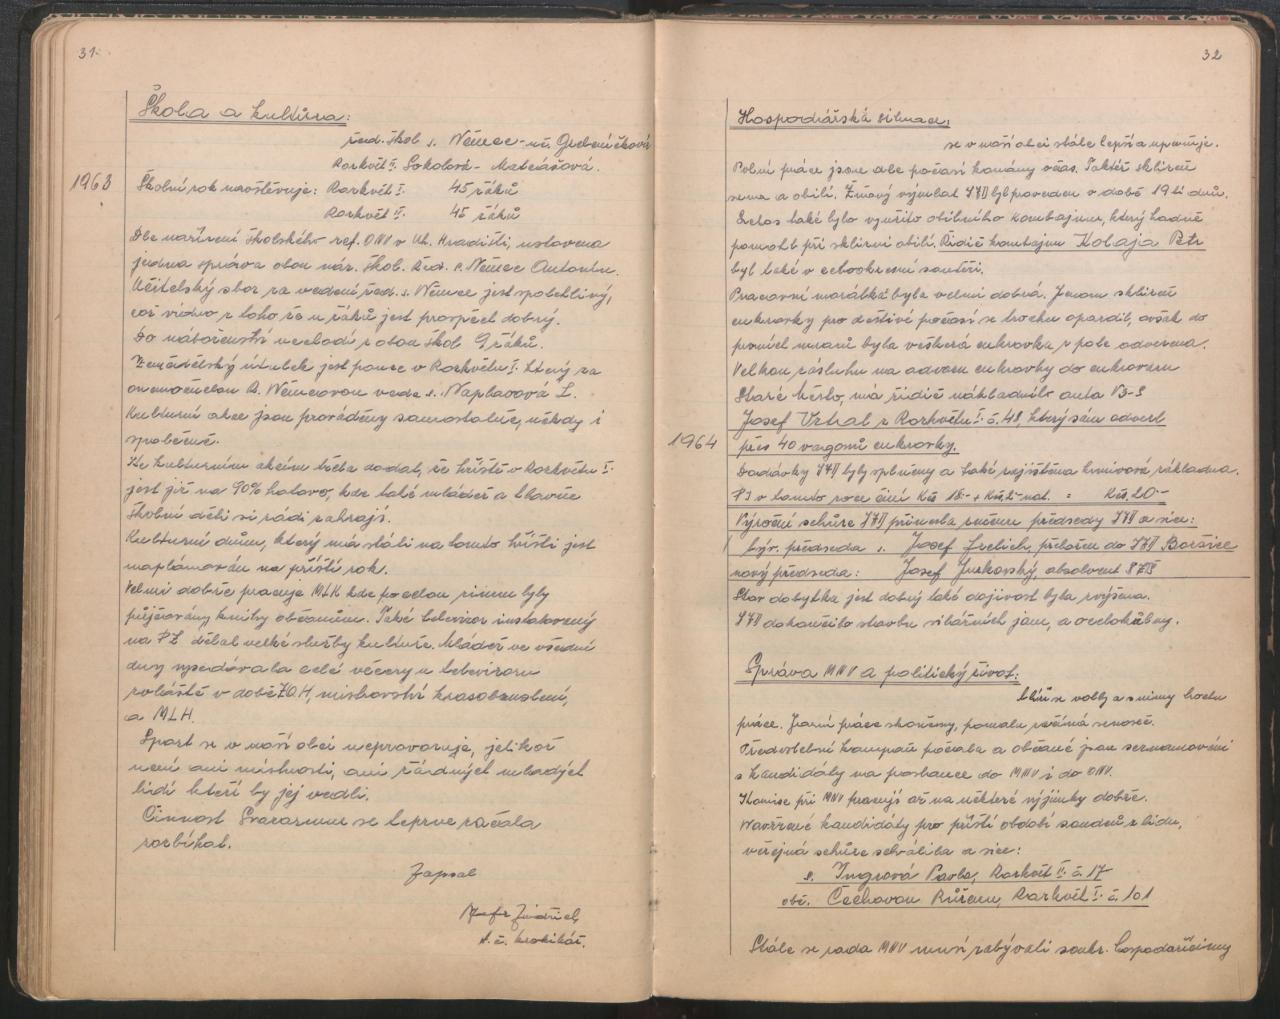 31.
Škola a kultura:
řed. škol s. Němec - uč. Grebeníčková
Rozkvět II. Sokolová - Mateášová.
1963
Školní rok navštěvuje: Rozkvět I. 45 žáků
Rozkvět II. 45 žáků
Dle nařízení školského ref. ONV v Uh. Hradišti, ustavena
jedna správa obou nár. škol. Řed. s. Němec Antonín.
Učitelský sbor za vedení řed. s. Němce jest spolehlivý,
což vidno z toho že u žáků jest prospěch dobrý.
Do náboženství nechodí z obou škol 9 žáků.
Zemědělský útulek jest pouze v Rozkvětu I. který za
onemocnělou A. Němcovou vede s. Naplavová L.
Kulturní akce jsou prováděny samostatně, někdy i
společně.
Ke kulturním akcím třeba dodat, že hřiště v Rozkvětu I.
jest již na 90% hotovo, kde také mládež a hlavně
školní děti si rádi zahrají.
Kulturní dům, který má státi na tomto hřišti jest
naplánován na příští rok.
Velmi dobře pracuje MLK kde po celou zimu byly
půjčovány knihy občanům. Také televizor instalovaný
na PZ dělal velké služby kultuře. Mládež ve všední
dny vysedávala celé večery u televizoru
zvláště v době ZOH, mistrovství krasobruslení,
a MLH.
Sport se v naší obci neprovozuje, jelikož
není ani místnosti, ani řádných mladých
lidí kteří by jej vedli.
Činnost Svazarmu se teprve začala
rozbíhat.
Zapsal
Jindřich
t. č. kronikář.
32
Hospodářská situace:
se v naší obci stále lepší a upevňuje.
Polní práce jsou dle počasí konány včas. Taktéž sklizeň
sena a obilí. Žňový výmlat JZD byl proveden v době 19ti dnů.
Letos také bylo využito obilního kombajnu, který hodně
pomohl při sklizni obilí. Řidič kombajnu Kolaja Petr
byl také v celookresní soutěži.
Pracovní morálka byla velmi dobrá. Jenom sklizeň
cukrovky pro deštivé počasí se trochu opozdil, avšak do
prvních mrazů byla veškerá cukrovka z pole odvezena.
Velkou zásluhu na odvozu cukrovky do cukrovaru
Staré Město, má řidič nákladního auta V3-S
Josef Vrtal z Rozkvětu I. č. 48, který sám odvezl
1964
přes 40 vagonů cukrovky.
Dodávky JZD byly splněny a také zajištěna krmivová základna.
PJ v tomto roce činí Kčs 18.- + Kčs 2.- nat. = Kčs. 20.-
Výroční schůze JZD přinesla změnu předsedy JZD a sice:
býv. předseda s. Josef Frelich, přeložen do JZD Boršice
nový předseda: Josef Jurkovský, absolvent
Stav dobytka jest dobrý také dojivost byla zvýšena.
JZD dokončilo stavbu silážních jam, a ocelokůlny.
Správa MNV a politický život:
blíží se volby a s nimy trochu
práce. Jarní práce skončeny, pomalu začíná senoseč.
Předvolební kampaň počala a občané jsou seznamováni
s kandidáty na poslance do MNV i do ONV.
Komise při MNV pracují až na některé výjimky dobře.
Navržené kandidáty pro příští období soudců z lidu,
veřejná schůze schválila a sice:
s. Ingrová Pavla, Rozkvět II. č. 17
obč. Čechovou Růženu, Rozkvět I. č. 101
Stále se rada MNV musí zabývati soukr. hospodařícímy